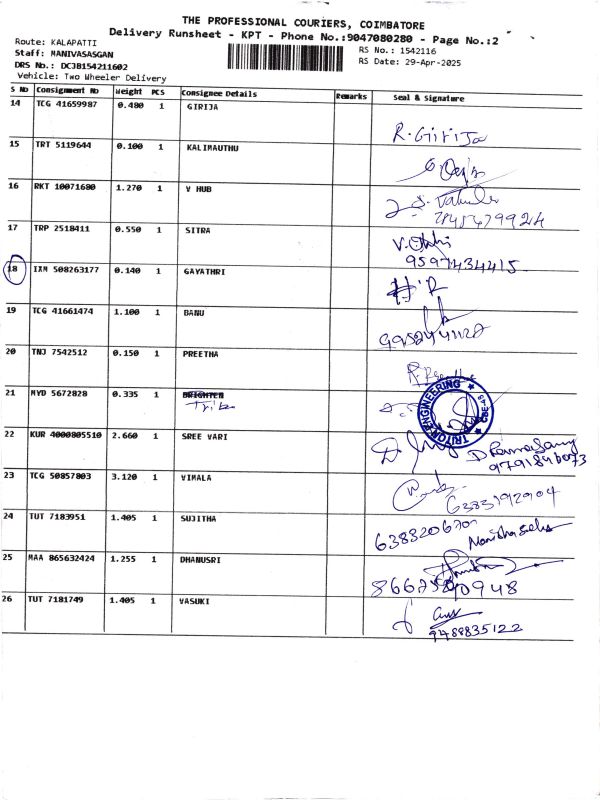 THE PROFESSIONAL COURIERS, COIMBATORE
Delivery Runsheet - KPT - Phone No.:9047080280 - Page No.:2
Route: KALAPATTI
RS No.: 1542116
Staff: MANIVASASGAN
RS Date: 29-Apr-2025
DRS No.: DC3B154211602
Vehicle: Two Wheeler Delivery
S No Consignment No Weight PCS Consignee Details Remarks Seal & Signature
14 TCG 41659987 0.480 1 GIRIJA
R. Girija
15 TRT 5119644 0.100 1 KALIMAUTHU
16 RKT 10071680 1.270 1 V HUB
17 TRP 2518411 0.550 1 SITRA
9597434415
18 IXM 508263177 0.140 1 GAYATHRI
19 TCG 41661474 1.100 1 BANU
20 TNJ 7542512 0.150 1 PREETHA
21 MYD 5672828 0.335 1 BRIGHTEN
TRITON ENGINEERING CBE-48
22 KUR 4000805510 2.660 1 SREE VARI
9791846073
23 TCG 50857803 3.120 1 VIMALA
6383192904
24 TUT 7183951 1.405 1 SUJITHA
25 MAA 865632424 1.255 1 DHANUSRI
26 TUT 7181749 1.405 1 VASUKI
9488835122